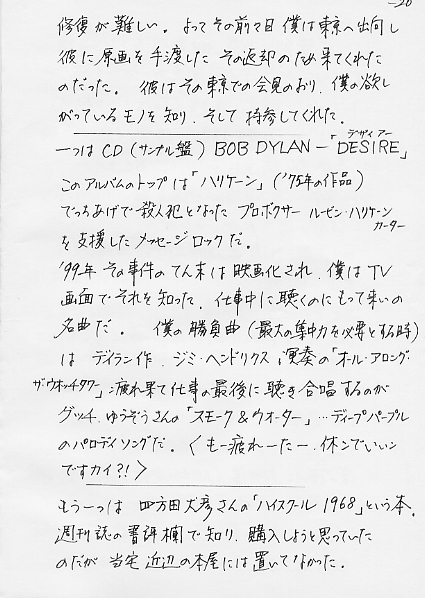 -20
修復が難しい。よってその前々日僕は東京へ出向し
彼に原画を手渡した その返却のため来てくれた
のだった。彼はその東京での会見のおり、僕の欲し
がっているモノを知り、そして持参してくれた。
一つはCD(サンプル盤)BOB DYLAN-「DESIRE」
デザイアー
このアルバムのトップは「ハリケーン」('75年の作品)
でっちあげで殺人犯となった プロボクサー ルービン・ハリケーン
カーター
を支援したメッセージロックだ。
'99年 その事件のてん末は映画化され、僕はTV
画面でそれを知った、仕事中に聴くのにもって来いの
名曲だ。 僕の勝負曲(最大の集中力を必要とする時)
は ディラン作、ジミ・ヘンドリクス演奏の「オール・アロング・
ザ・ウオッチタワー」;疲れ果て仕事の最後に聴き合唱するのが
グッチ、ゆうぞうさんの「スモーク&ウオーター」…ディープパープル
のパロディソングだ。〈もー疲れーたー、休ンでいいン
ですカイ?!〉
もう一つは 四方田犬彦さんの「ハイスクール1968」という本、
週刊誌の書評欄で知り、購入しようと思っていた
のだが 当宅近辺の本屋には置いてなかった。